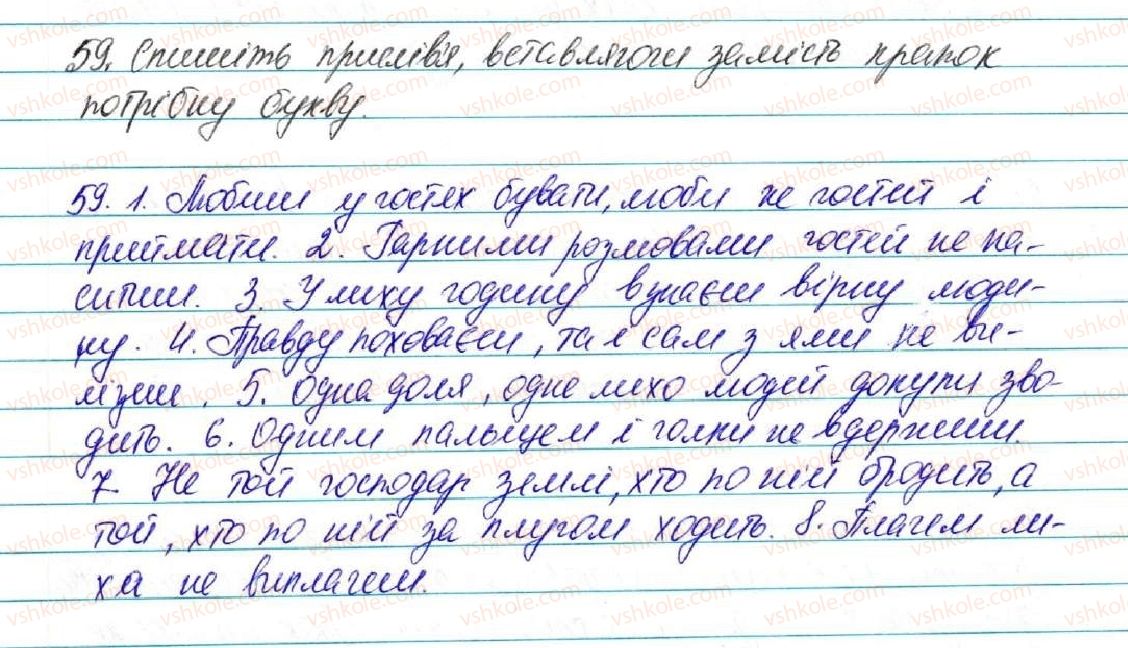 59. Спишіть прислів'я, вставляючи замість крапок
потрібну букву.
59. 1. Любиш у гостях бувати, люби же гостей і
приймати. 2. Гарними розмовами гостей не на-
ситиш. 3. У лиху годину взнаєш вірну люди-
ну. 4. Правду поховаєш, та і сам з ями не ви-
лізеш. 5. Одна доля, одне лихо людей докупи зво-
дить. 6. Одним пальцем і голки не вдержиш.
7. Не той господар землі, хто по ній бродить, а
той, хто по ній за плугом ходить. 8. Плачем ли-
ха не виплачеш.
vshkole.com